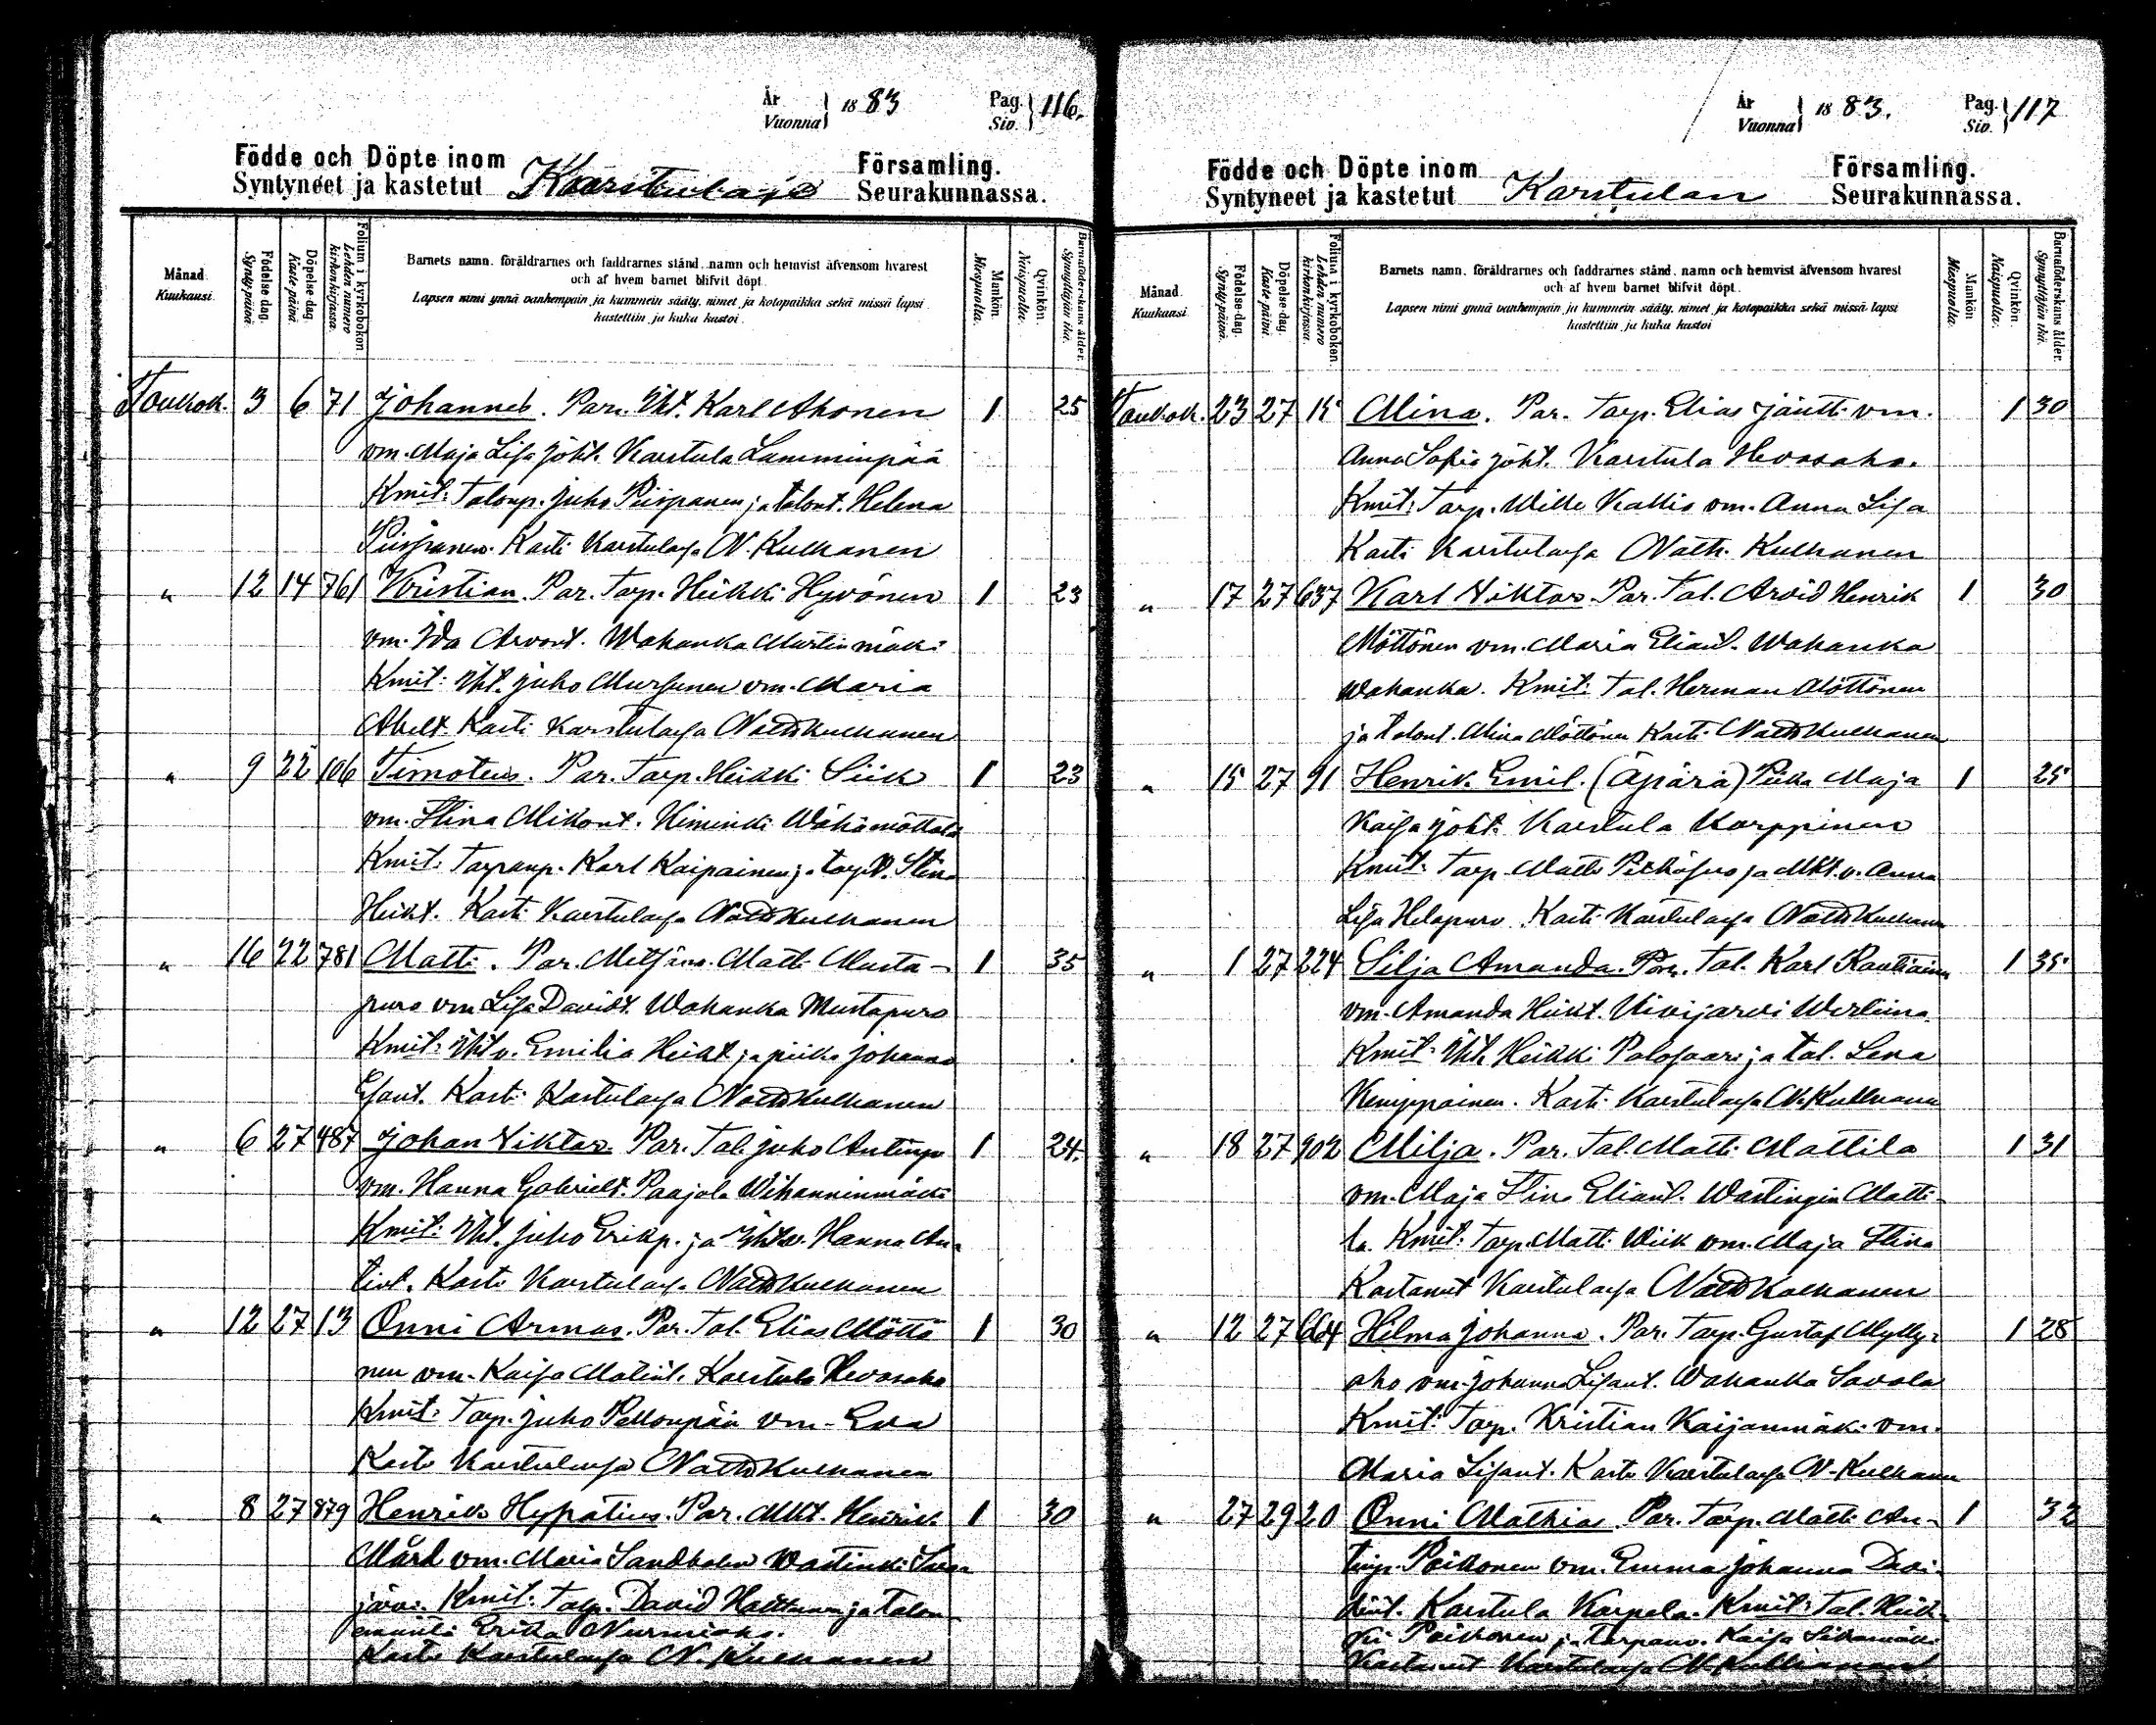 År
Vuonna } 1883
Pag.
Siv. } 116.
Födde och Döpte inom
Syntyneet ja kastetut
Församling.
Seurakunnassa.
Månad. Kuukausi.
Födelse-dag. Synty-päivä.
Döpelse-dag. Kaste-päivä.
Folium i kyrkoboken. Lehden numero kirkonkirjassa.
Barnets namn, föräldrarnes och faddrarnes stånd, namn och hemvist äfvensom hvarest
och af hvem barnet blifvit döpt.
Lapsen nimi ynnä vanhempain ja kummein sääty, nimet ja kotopaikka sekä missä lapsi
kastettiin ja kuka kastoi.
Mankön. Miespuolia.
Qvinkön. Naispuolia.
Barnaföderskans ålder. Synnyttäjän ikä.
Toukok. 3 6 71 Johannes. Par. Iht. Karl Ahonen 1 25
vm. Maja Lisa Joht. Karstula Lamminpää
Kmit: Taloup. Juho Piispanen ja talont. Helena
Piispanen. Kasti Karstulassa N. Kulhanen
" 12 14 761 Kristian. Par. Torp. Heikki Hyvönen 1 23
vm. Ida Arvont. Wahanka Martinmäki
Kmit: Iht. Juho Mursunen vm. Maria
Abelt. Kasti Karstulassa Nath Kulhanen
" 9 22 106 Timoteus. Par. Torp. Heikki Siik 1 23
vm. Stina Mikont. Kiminki Wähämöttölä
Kmit: Karl Kaipainen ja Stina
Heikt. Kasti Karstulassa Nath Kulhanen
" 16 22 781 Matti. Par. Matti Musta- 1 35
puro vm Lisa Davidt. Wahanka Mustapuro
Kmit: Iht v. Emilia Heikt ja piika Johanna
Esaut. Kasti Karstulassa Nath Kulhanen
" 6 27 487 Johan Viktor. Par. Tal. Juho Antinp 1 24.
vm. Hanna Gabrielt. Paajala Wihanninmäki
Kmit: Iht. Juho Erikp. ja Ihtv. Hanna An-
tint. Kasti Karstulassa Nath Kulhanen
" 12 27 13 Onni Armas. Par. Tal. Elias Möttö 1 30
nen vm. Kaisa Matint. Karstula Hevosaho
Kmit: Torp. Juho Pellonpää vm. Eva
Kasti Karstulassa Nath Kulhanen
" 8 27 879 Henrik Hypatius. Par. Mkt. Henrik 1 30
Mård vm. Maria Sandholm Wastinki
järvi. Kmit: Torp. David ja Talon-
emäntä Erika Nurmiaho.
Kasti Karstulassa N. Kulhanen
År
Vuonna } 1883.
Pag.
Siv. } 117
Födde och Döpte inom
Syntyneet ja kastetut
Karstulan
Församling.
Seurakunnassa.
Månad. Kuukausi.
Födelse-dag. Synty-päivä.
Döpelse-dag. Kaste-päivä.
Folium i kyrkoboken. Lehden numero kirkonkirjassa.
Barnets namn, föräldrarnes och faddrarnes stånd, namn och hemvist äfvensom hvarest
och af hvem barnet blifvit döpt.
Lapsen nimi ynnä vanhempain ja kummein sääty, nimet ja kotopaikka sekä missä lapsi
kastettiin ja kuka kastoi
Mankön. Miespuolia.
Qvinkön. Naispuolia.
Barnaföderskans ålder. Synnyttäjän ikä.
Toukok. 23 27 15 Alina. Par. Torp. Elias Jäntti vm. 1 30
Anna Sofia Joht. Karstula Hevosaho.
Kmit: Torp. Wille Kallio vm. Anna Lisa
Kasti Karstulassa Nath. Kulhanen
" 17 27 637 Karl Viktor. Par. Tal. Arvid Henrik 1 30
Möttönen vm. Maria Eliast. Wahanka
Wahanka. Kmit: Tal. Herman Möttönen
ja talont. Mina Möttönen Kasti Nath Kulhanen
" 15 27 91 Henrik Emil. (Äpärä) Piika Maja 1 25
Kaisa Joht. Karstula Korppinen
Kmit: Torp. Matti ja Mkt. v. Anna
Lisa Helapuro. Kasti Karstulassa Nath Kulhanen
" 1 27 224 Silja Amanda. Par. Tal. Karl Rautiainen 1 35
vm. Amanda Heikt. Kivijärvi
Kmit: Iht. Heikki Palosaari ja tal. Lena
Kemppainen. Kasti Karstulassa N. Kulhanen
" 18 27 902 Milja. Par. Tal. Matti Mattila 1 31
vm. Maja Stina Eliast. Wastingin Matti-
la. Kmit: Torp. Matti Wiik vm. Maja Stina
Kastanut Karstulassa Nath Kulhanen
" 12 27 664 Hilma Johanna. Par. Torp. Gustaf Mylly- 1 28
aho vm. Johanna Wahanka Savola
Kmit: Torp. Kristian Kaijanmäki vm.
Maria Kasti Karstulassa N. Kulhanen
" 27 29 20 Onni Mathias. Par. Torp. Matti An- 1 32
tinp. Poikonen vm. Emma Johanna Davi-
dint. Karstula Karpela. Kmit: Tal. Heik-
ki Poikonen ja Kaisa
Kastanut Karstulassa N. Kulhanen